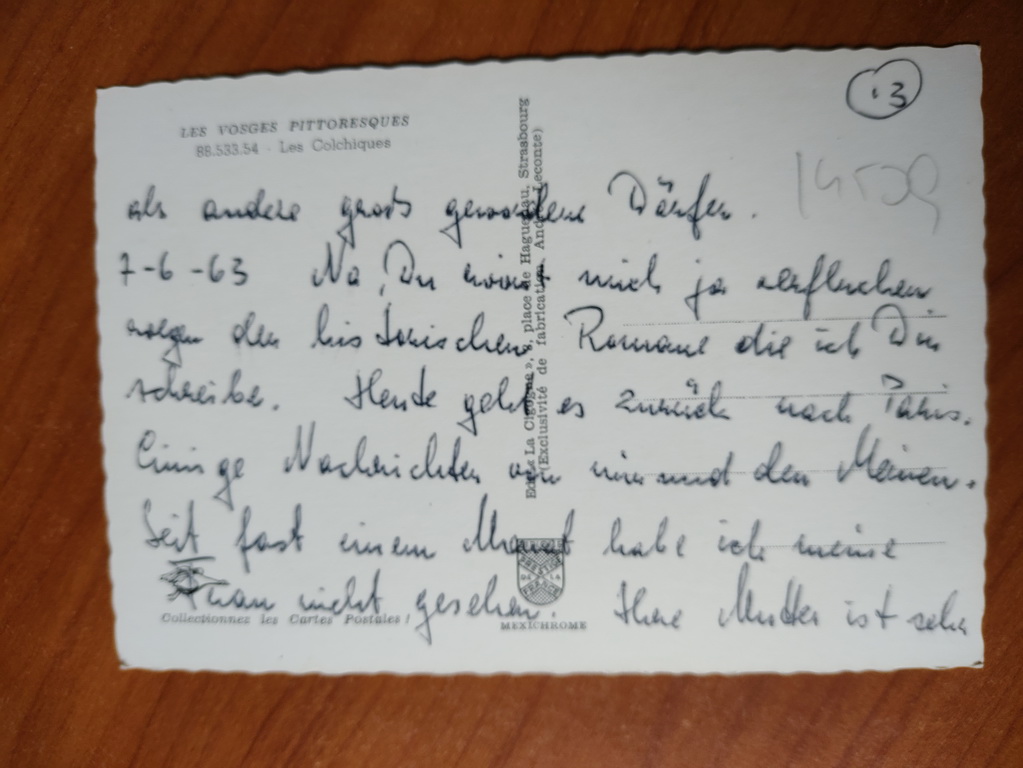 13
LES VOSGES PITTORESQUES
88.533.54 - Les Colchiques
als andere groß gewordene Dörfer.
7-6-63 Na, Du wirst mich ja verfluchen
wegen der historischen Romane die ich Dir
schreibe. Heute geht es zurück nach Paris.
Einige Nachrichten von mir und den Meinen.
Seit fast einem Monat habe ich meine
Frau nicht gesehen. Ihre Mutter ist sehr
Collectionnez les Cartes Postales !
Edit. La Cigogne », place de Haguenau, Strasbourg
(Exclusivité de fabrication André Leconte)
MEXICHROME